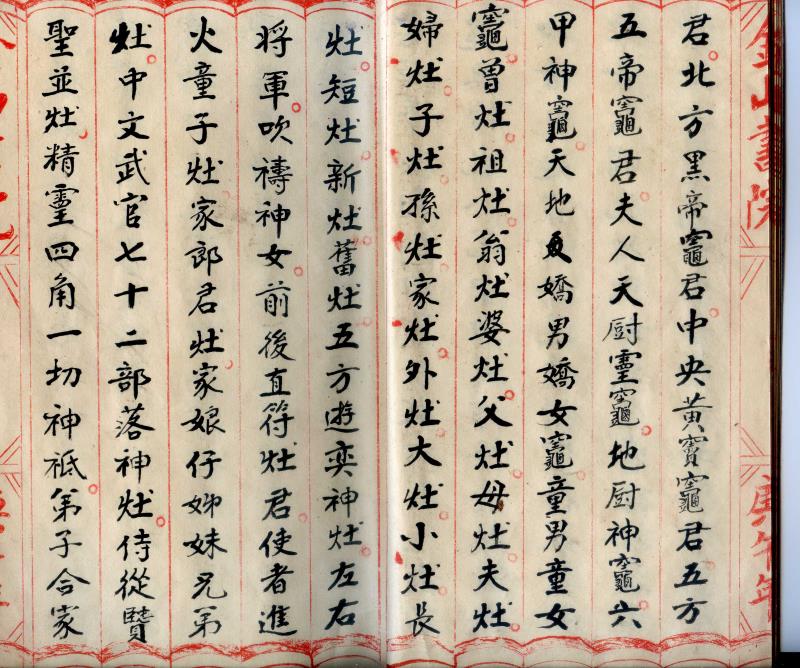 君北方黑帝竈君中央黃帝竈君五方
五帝竈君夫人天厨靈竈地厨神竈六
甲神竈天地嬌男嬌女竈童男童女
竈曾灶祖灶翁灶婆灶父灶母灶夫灶
婦灶子灶孫灶家灶外灶大灶小灶長
灶短灶新灶舊灶五方遊奕神灶左右
将軍吹禱神女前後直符灶君使者進
火童子灶家郎君灶家娘仔姊妹兄弟
灶中文武官七十二部落神灶侍從賢
聖並灶精靈四角一切神祗弟子合家